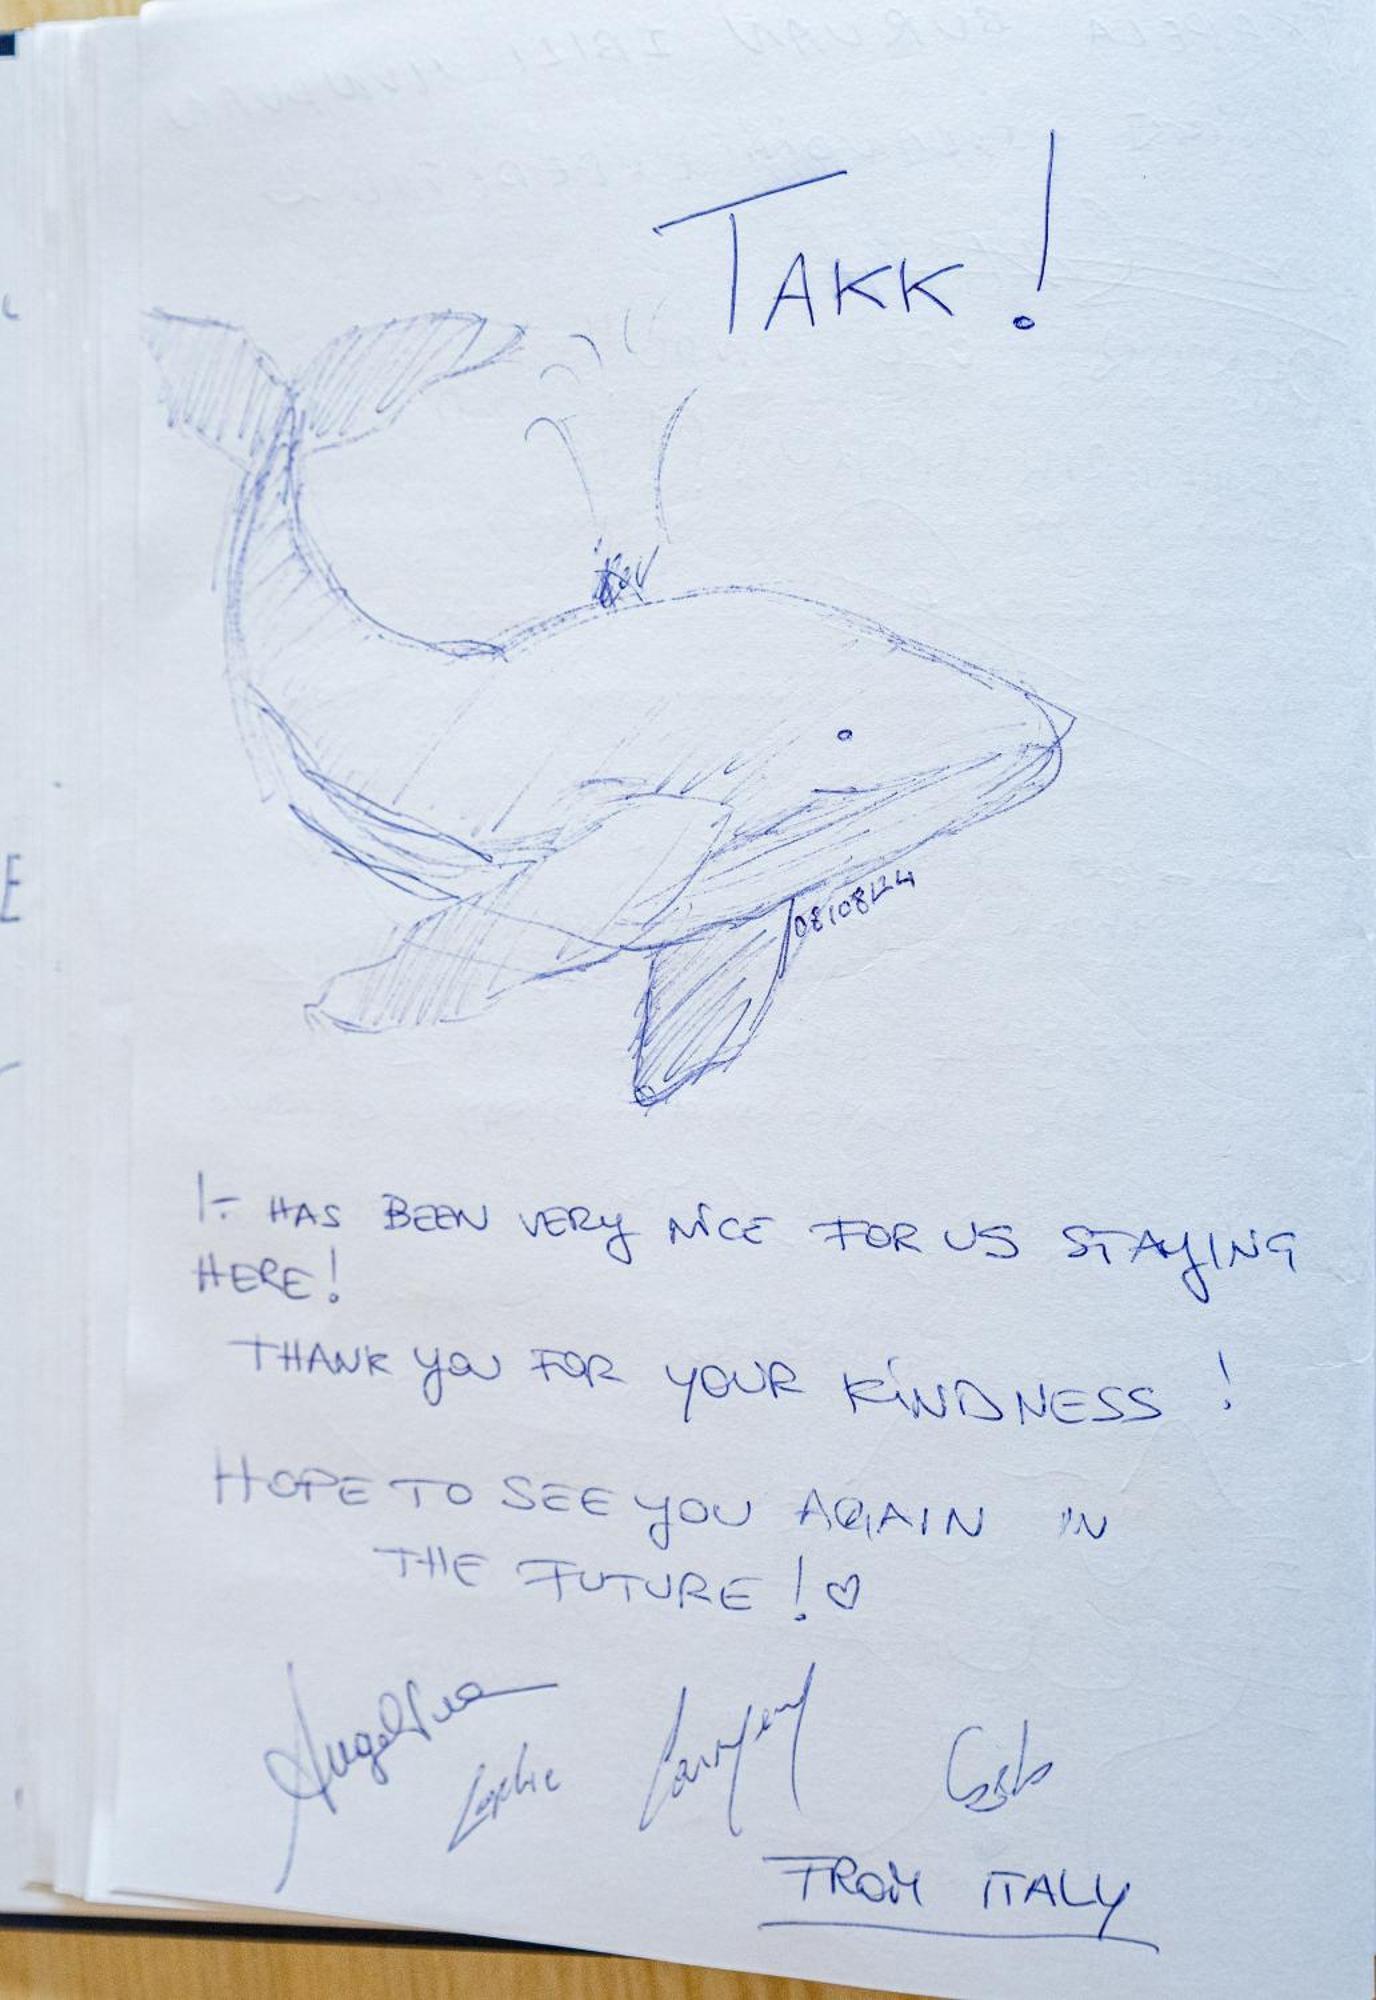 TAKK!
08/08/24
It HAS BEEN VERY NICE FOR US STAYING
HERE!
THANK YOU FOR YOUR KINDNESS !
HOPE TO SEE YOU AGAIN IN
THE FUTURE!♡
Angelina
FROM ITALY